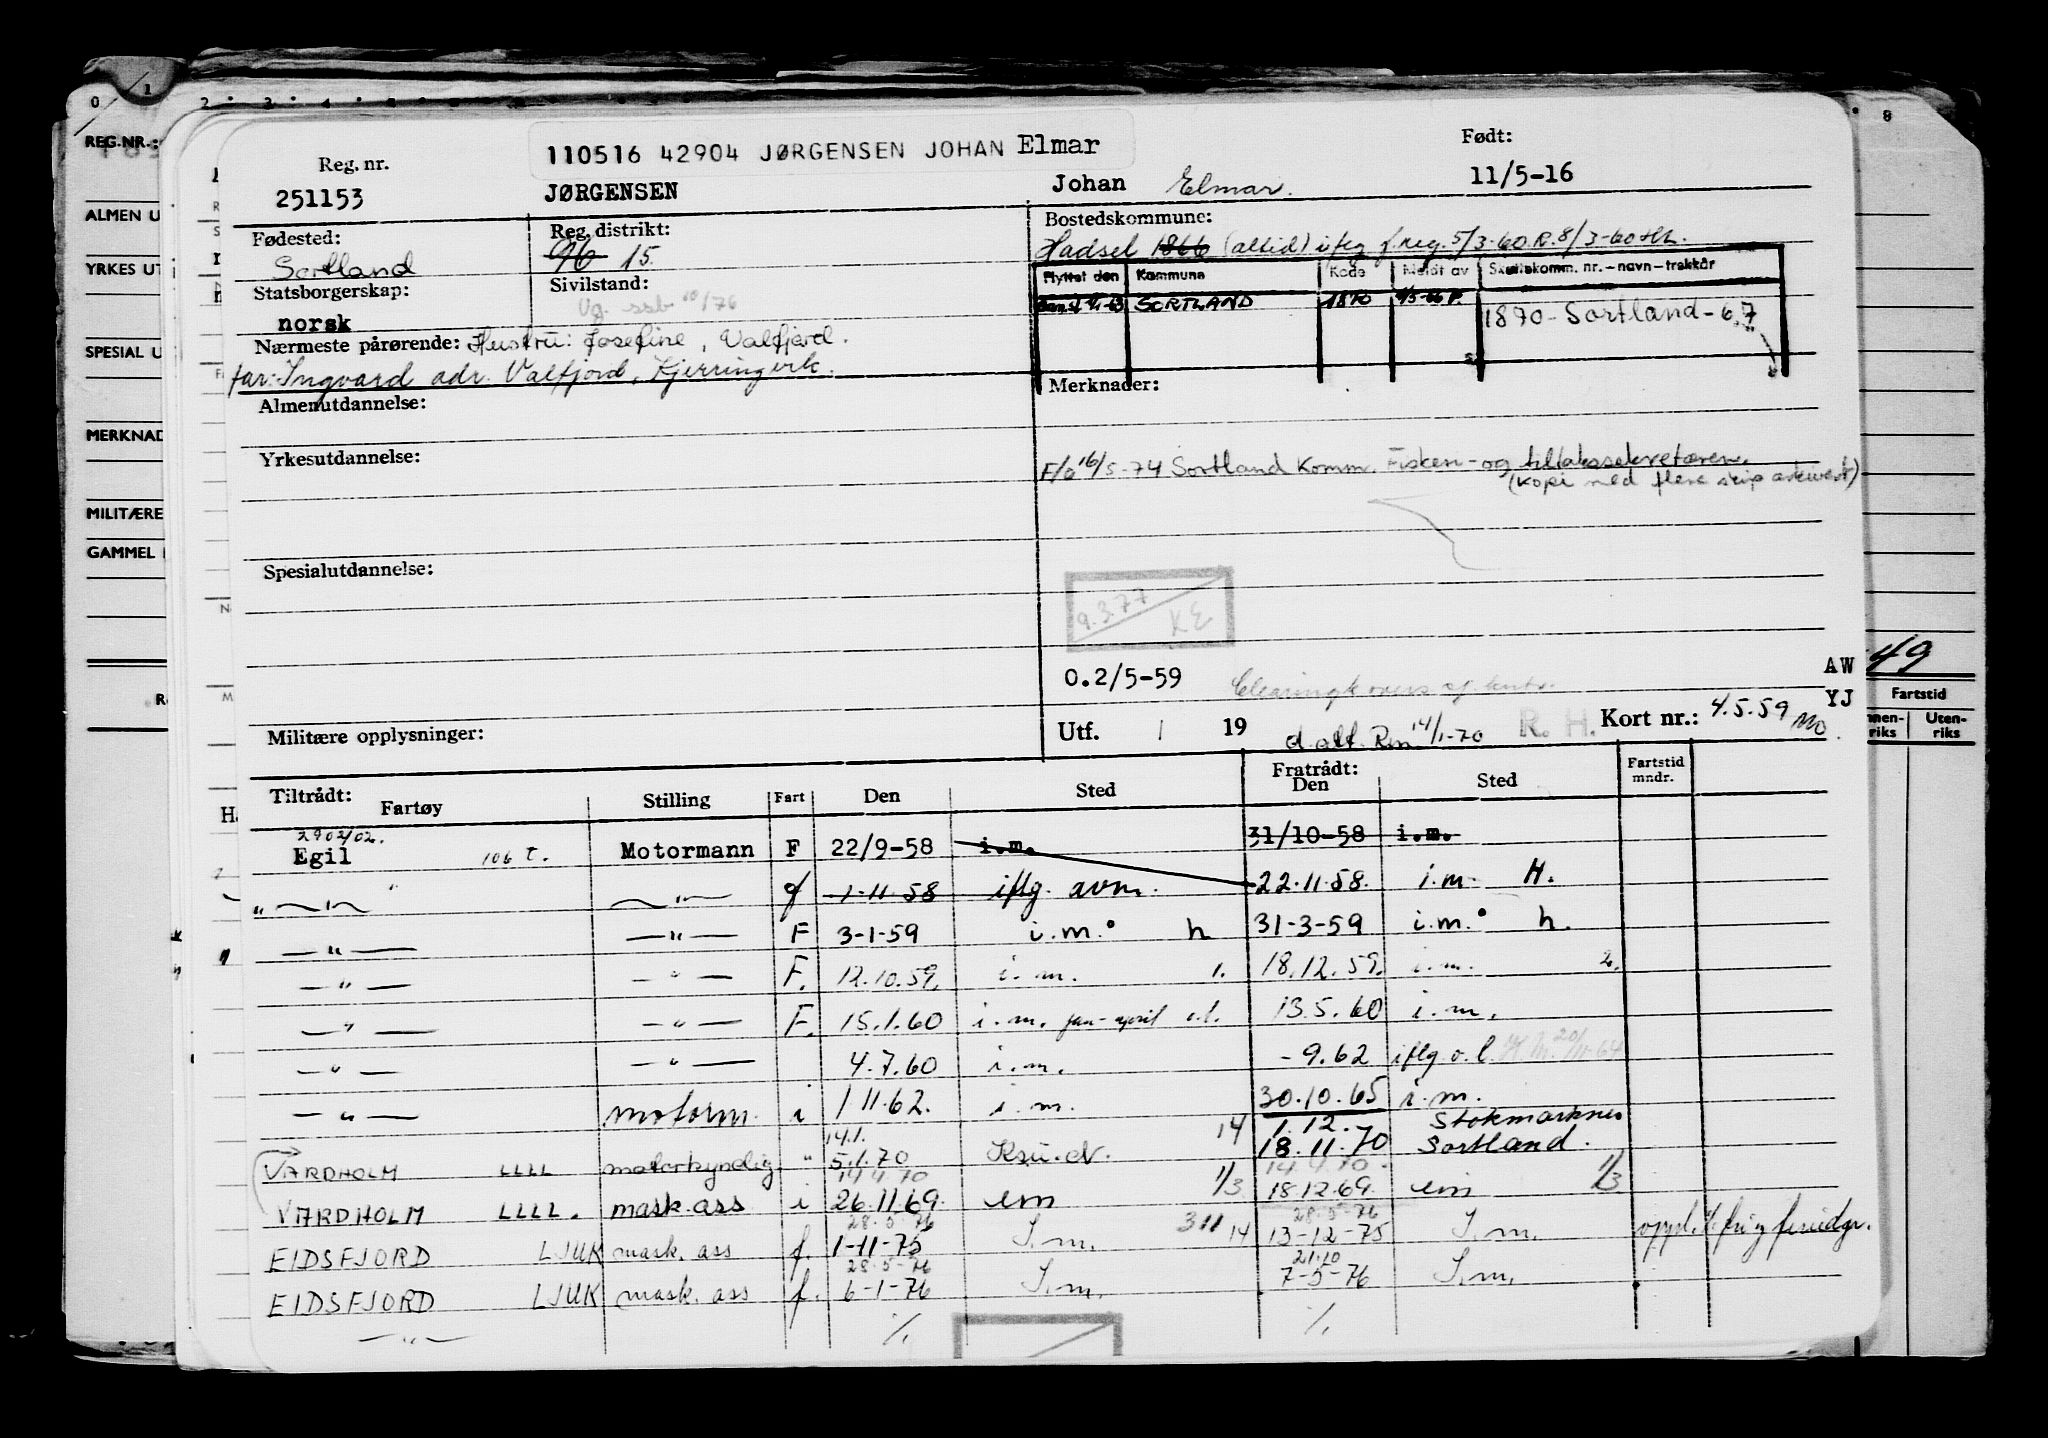 0 1 2 3 4 8
REG.NR.:
ALMEN U
YRKES UT
SPESIAL U
MERKNAD
MILITÆRE
GAMMEL
49
Fartstid
nnen-riks Uten-riks
110516 42904 JØRGENSEN JOHAN Elmar
Reg. nr. Født:
251153 JØRGENSEN Johan Elmar. 11/5-16
Fødested: Reg. distrikt: Bostedskommune:
Sortland 96 15. Hadsel 1866 (altid) iflg f.reg. 5/3-60 R.8/3-60
Statsborgerskap: Sivilstand:
norsk Vg. ssb 10/76
Flyttet den Kommune Kode Meldt av Skattekomm. nr.-navn-trekkår
SORTLAND 1870 1870-Sortland-67
Nærmeste pårørende: Hustru: Josefine, Valfjord.
far: Ingvard adr. Valfjord, Kjerringvik.
Merknader:
Almenutdannelse:
Yrkesutdannelse:
F/o 16/5-74 Sortland Komm. Fisker- og tiltakssekretæren.
(Kopi med flere skip arkivert)
Spesialutdannelse:
9.3.77 KE
0.2/5-59 AW
YJ
Militære opplysninger:
Utf. / 19 d.alt. Rm 14/1-70 R. H. Kort nr.: 4.5.59 Mo.
Tiltrådt: Fratrådt: Fartstid mndr.
Fartøy Stilling Fart Den Sted Den Sted
2902/02.
Egil 106 t. Motormann F 22/9-58 i.m. 31/10-58 i.m.
—"— —"— f 1-11-58 iflg. avm. 22.11.58. i.m. H.
—"— —"— F 3-1-59 i.m. h 31-3-59 i.m. h.
—"— —"— F. 12.10.59. i.m. 1. 18.12.59. i.m. 2.
—"— —"— F. 15.1.60 i.m. jan-april o.l. 13.5.60 i.m.
—"— —"— 4.7.60 i.m. -9.62 iflg. o.l.
—"— motorm. i 1 11.62. i.m. 30.10.65 i.m.
14.1. 14 1.12. Stokmarknes
VARDHOLM LLLL motorkyndig " 5.1.70 Kr.su.N. 18.11.70 Sortland.
14 4 70 14.4.70.
VARDHOLM LLLL. mask.ass i 26.11.69. em 1/3 18.12.69. em 1/3
28.5-76 28-5-76
EIDSFJORD LJUK mask. ass f. 1-11-75 I.m. 311 14 13-12-75 I.m. oppl. frig feriedgr.
28.5-76 21.10
EIDSFJORD LJUK mask. ass f. 6-1-76 I.m. 7-5-76 I.m.
—"— %. %.